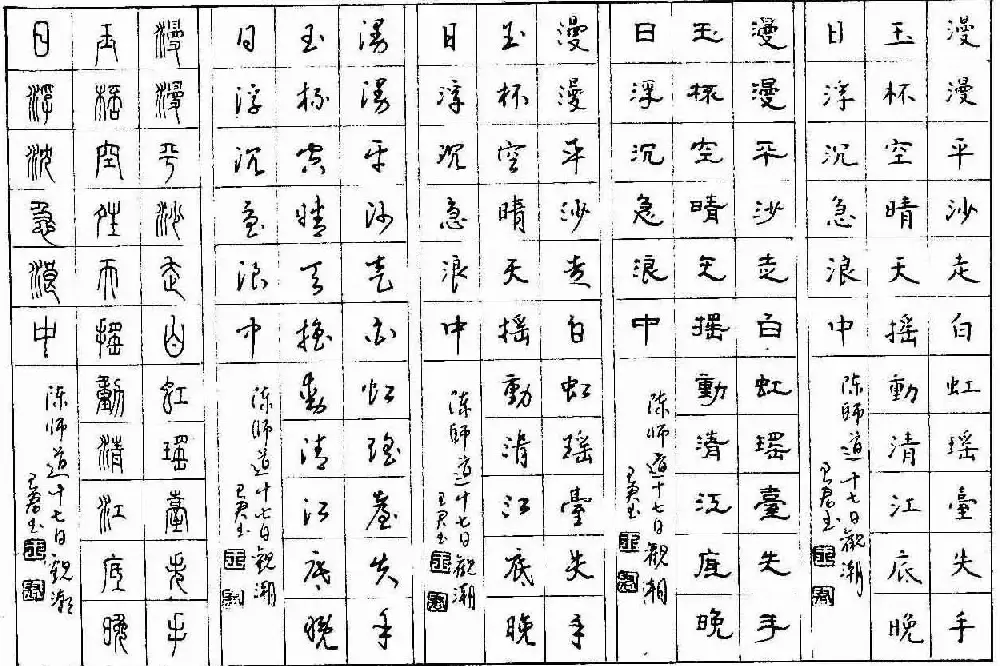 漫漫平沙走白虹瑶臺失手
玉杯空晴天摇動清江底晚
日浮沉急浪中
陈師道十七日觀潮
漫漫平沙走白虹瑶臺失手
玉杯空晴天摇動清江底晚
日浮沉急浪中
陈师道十七日觀潮
漫漫平沙走白虹瑶臺失手
玉杯空晴天摇動清江底晚
日浮沉急浪中
陈師道十七日觀潮
漫漫平沙走白虹瑶臺失手
玉杯空晴天摇動清江底晚
日浮沉急浪中
陈师道十七日觀潮
漫漫平沙走白虹瑶臺失手
玉杯空晴天摇動清江底晚
日浮沉急浪中
陈师道十七日觀潮